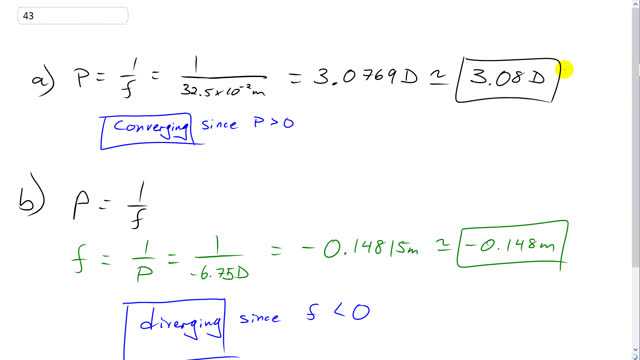 43
a) P = 1/f = 1/(32.5×10⁻²m) = 3.0769D ≃ 3.08D
converging since P>0
b) P = 1/f
f = 1/P = 1/(-6.75D) = -0.14815m ≃ -0.148m
diverging since f<0